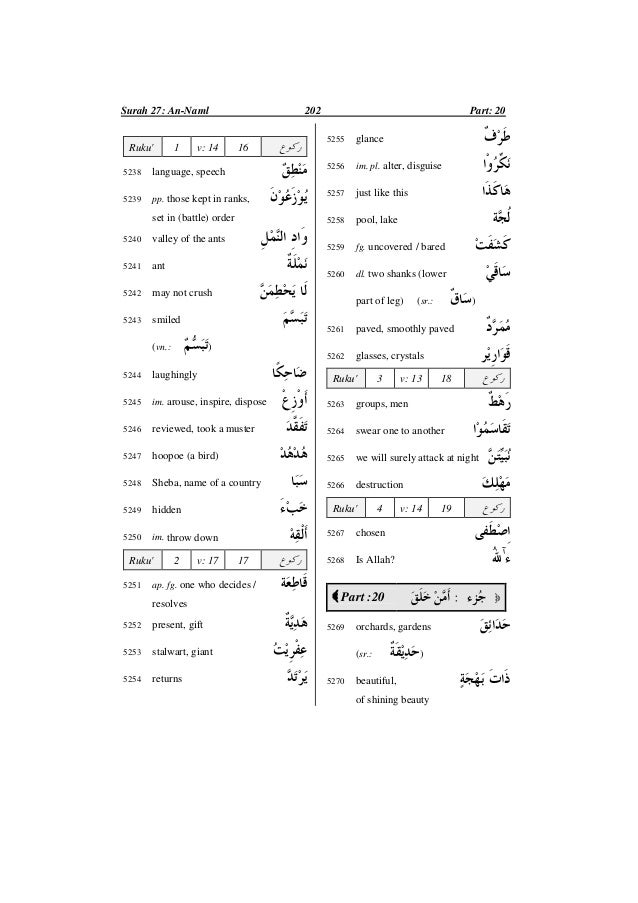 Surah 27: An-Naml 202 Part: 20
Ruku` 1 v: 14 16 ركوع
5238 language, speech مَنْطِقٌ
5239 pp. those kept in ranks, يُوْزَعُوْنَ
set in (battle) order
5240 valley of the ants وَادِ النَّمْلِ
5241 ant نَمْلَةٌ
5242 may not crush لَا يَحْطِمَنَّ
5243 smiled تَبَسَّمَ
(vn.: تَبَسُّمٌ)
5244 laughingly ضَاحِكًا
5245 im. arouse, inspire, dispose أَوْزِعْ
5246 reviewed, took a muster تَفَقَّدَ
5247 hoopoe (a bird) هُدْهُدْ
5248 Sheba, name of a country سَبَاَ
5249 hidden خَبْءَ
5250 im. throw down أَلْقِهْ
Ruku` 2 v: 17 17 ركوع
5251 ap. fg. one who decides / قَاطِعَة
resolves
5252 present, gift هَدِيَّةٌ
5253 stalwart, giant عِفْرِيْتُ
5254 returns يَرْتَدَّ
5255 glance طَرْفٌ
5256 im. pl. alter, disguise نَكِّرُوْا
5257 just like this هَاكَذَا
5258 pool, lake لُجَّة
5259 fg. uncovered / bared كَشَفَتْ
5260 dl. two shanks (lower سَاقَيْ
part of leg) (sr.: سَاقٌ)
5261 paved, smoothly paved مُمَرَّدٌ
5262 glasses, crystals قَوَارِيْرَ
Ruku` 3 v: 13 18 ركوع
5263 groups, men رَهْطٌ
5264 swear one to another تَقَاسَمُوْا
5265 we will surely attack at night نُبَيِّتَنَّ
5266 destruction مَهْلِكَ
Ruku` 4 v: 14 19 ركوع
5267 chosen اِصْطَفٰى
5268 Is Allah? ءٓاللهُ
Part :20 أَمَّنْ خَلَقَ : جُزء
5269 orchards, gardens حَدَائِقَ
(sr.: حَدِيْقَةٌ)
5270 beautiful, ذَاتَ بَهْجَةٍ
of shining beauty